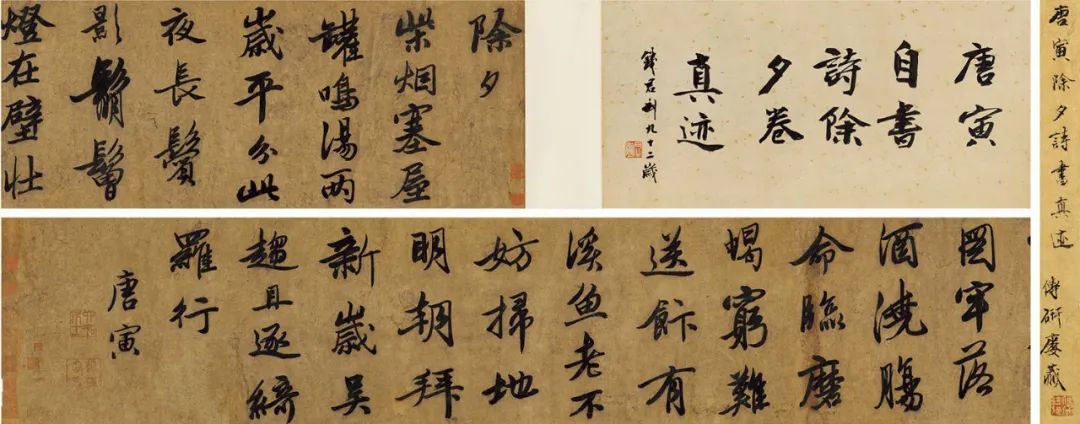 唐寅除夕詩書真迹
唐寅
自書
詩除
夕卷
真迹
錢君匋九十二歲
除夕
柴烟塞屋
罐鳴湯兩
歲平分此
夜長鬢
影鬅鬙
燈在壁壯
圖牢落
酒澆腸
命臨磨
蝎窮難
送飰有
溪魚老不
妨掃地
明朝拜
新歲吴
趨且逐綺
羅行
唐寅